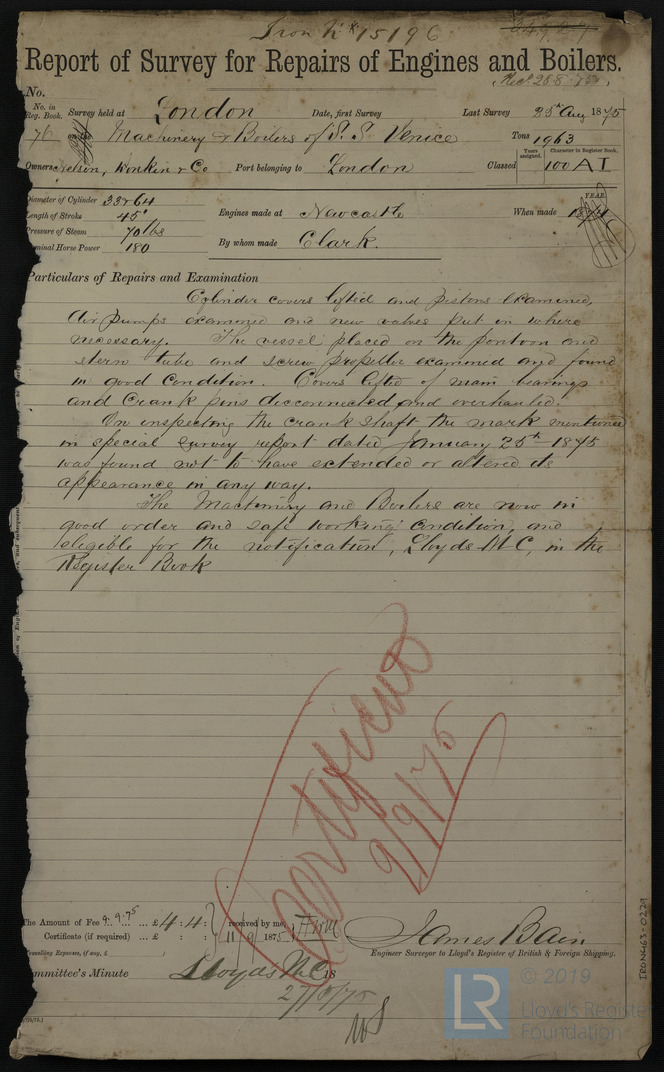 Iron Nº 15196
Report of Survey for Repairs of Engines and Boilers.
Recd 26.8.75
No.
No. in Reg. Book. Survey held at London Date, first Survey Last Survey 25th Aug 1875
76 on the Machinery & Boilers of S. S. Venice Tons 1963
Owners Nelson, Donkin & Co Port belonging to London Classed Years assigned. 100 Character in Register Book. A I
Diameter of Cylinder 33 & 64
Length of Stroke 45"
Pressure of Steam 70 lbs
Nominal Horse Power 180
Engines made at Newcastle When made YEAR 1874
By whom made Clark.
Particulars of Repairs and Examination
Cylinder covers lifted and pistons examined,
Air pumps examined and new valves put in where
necessary. The vessel placed on the pontoon and
stern tube and screw propeller examined and found
in good condition. Covers lifted of main bearings
and Crank pins disconnected and overhauled.
On inspecting the crank shaft the mark mentioned
in special survey report dated January 25th 1875
was found not to have extended or altered its
appearance in any way.
The Machinery and Boilers are now in
good order and safe working condition, and
eligible for the notification, Lloyds M C, in the
Register Book
Certificate
9/9/75
The Amount of Fee 9.9.75 ... £ 4 : 4 : received by me,
Certificate (if required) ... £ : : 11/9 1875
Travelling Expenses, if any, £
James Bain
Engineer Surveyor to Lloyd's Register of British & Foreign Shipping.
Committee's Minute Lloyds M.C. 18
27/8/75
IRON463-0229
LR
© 2019
Lloyd's Register
Foundation